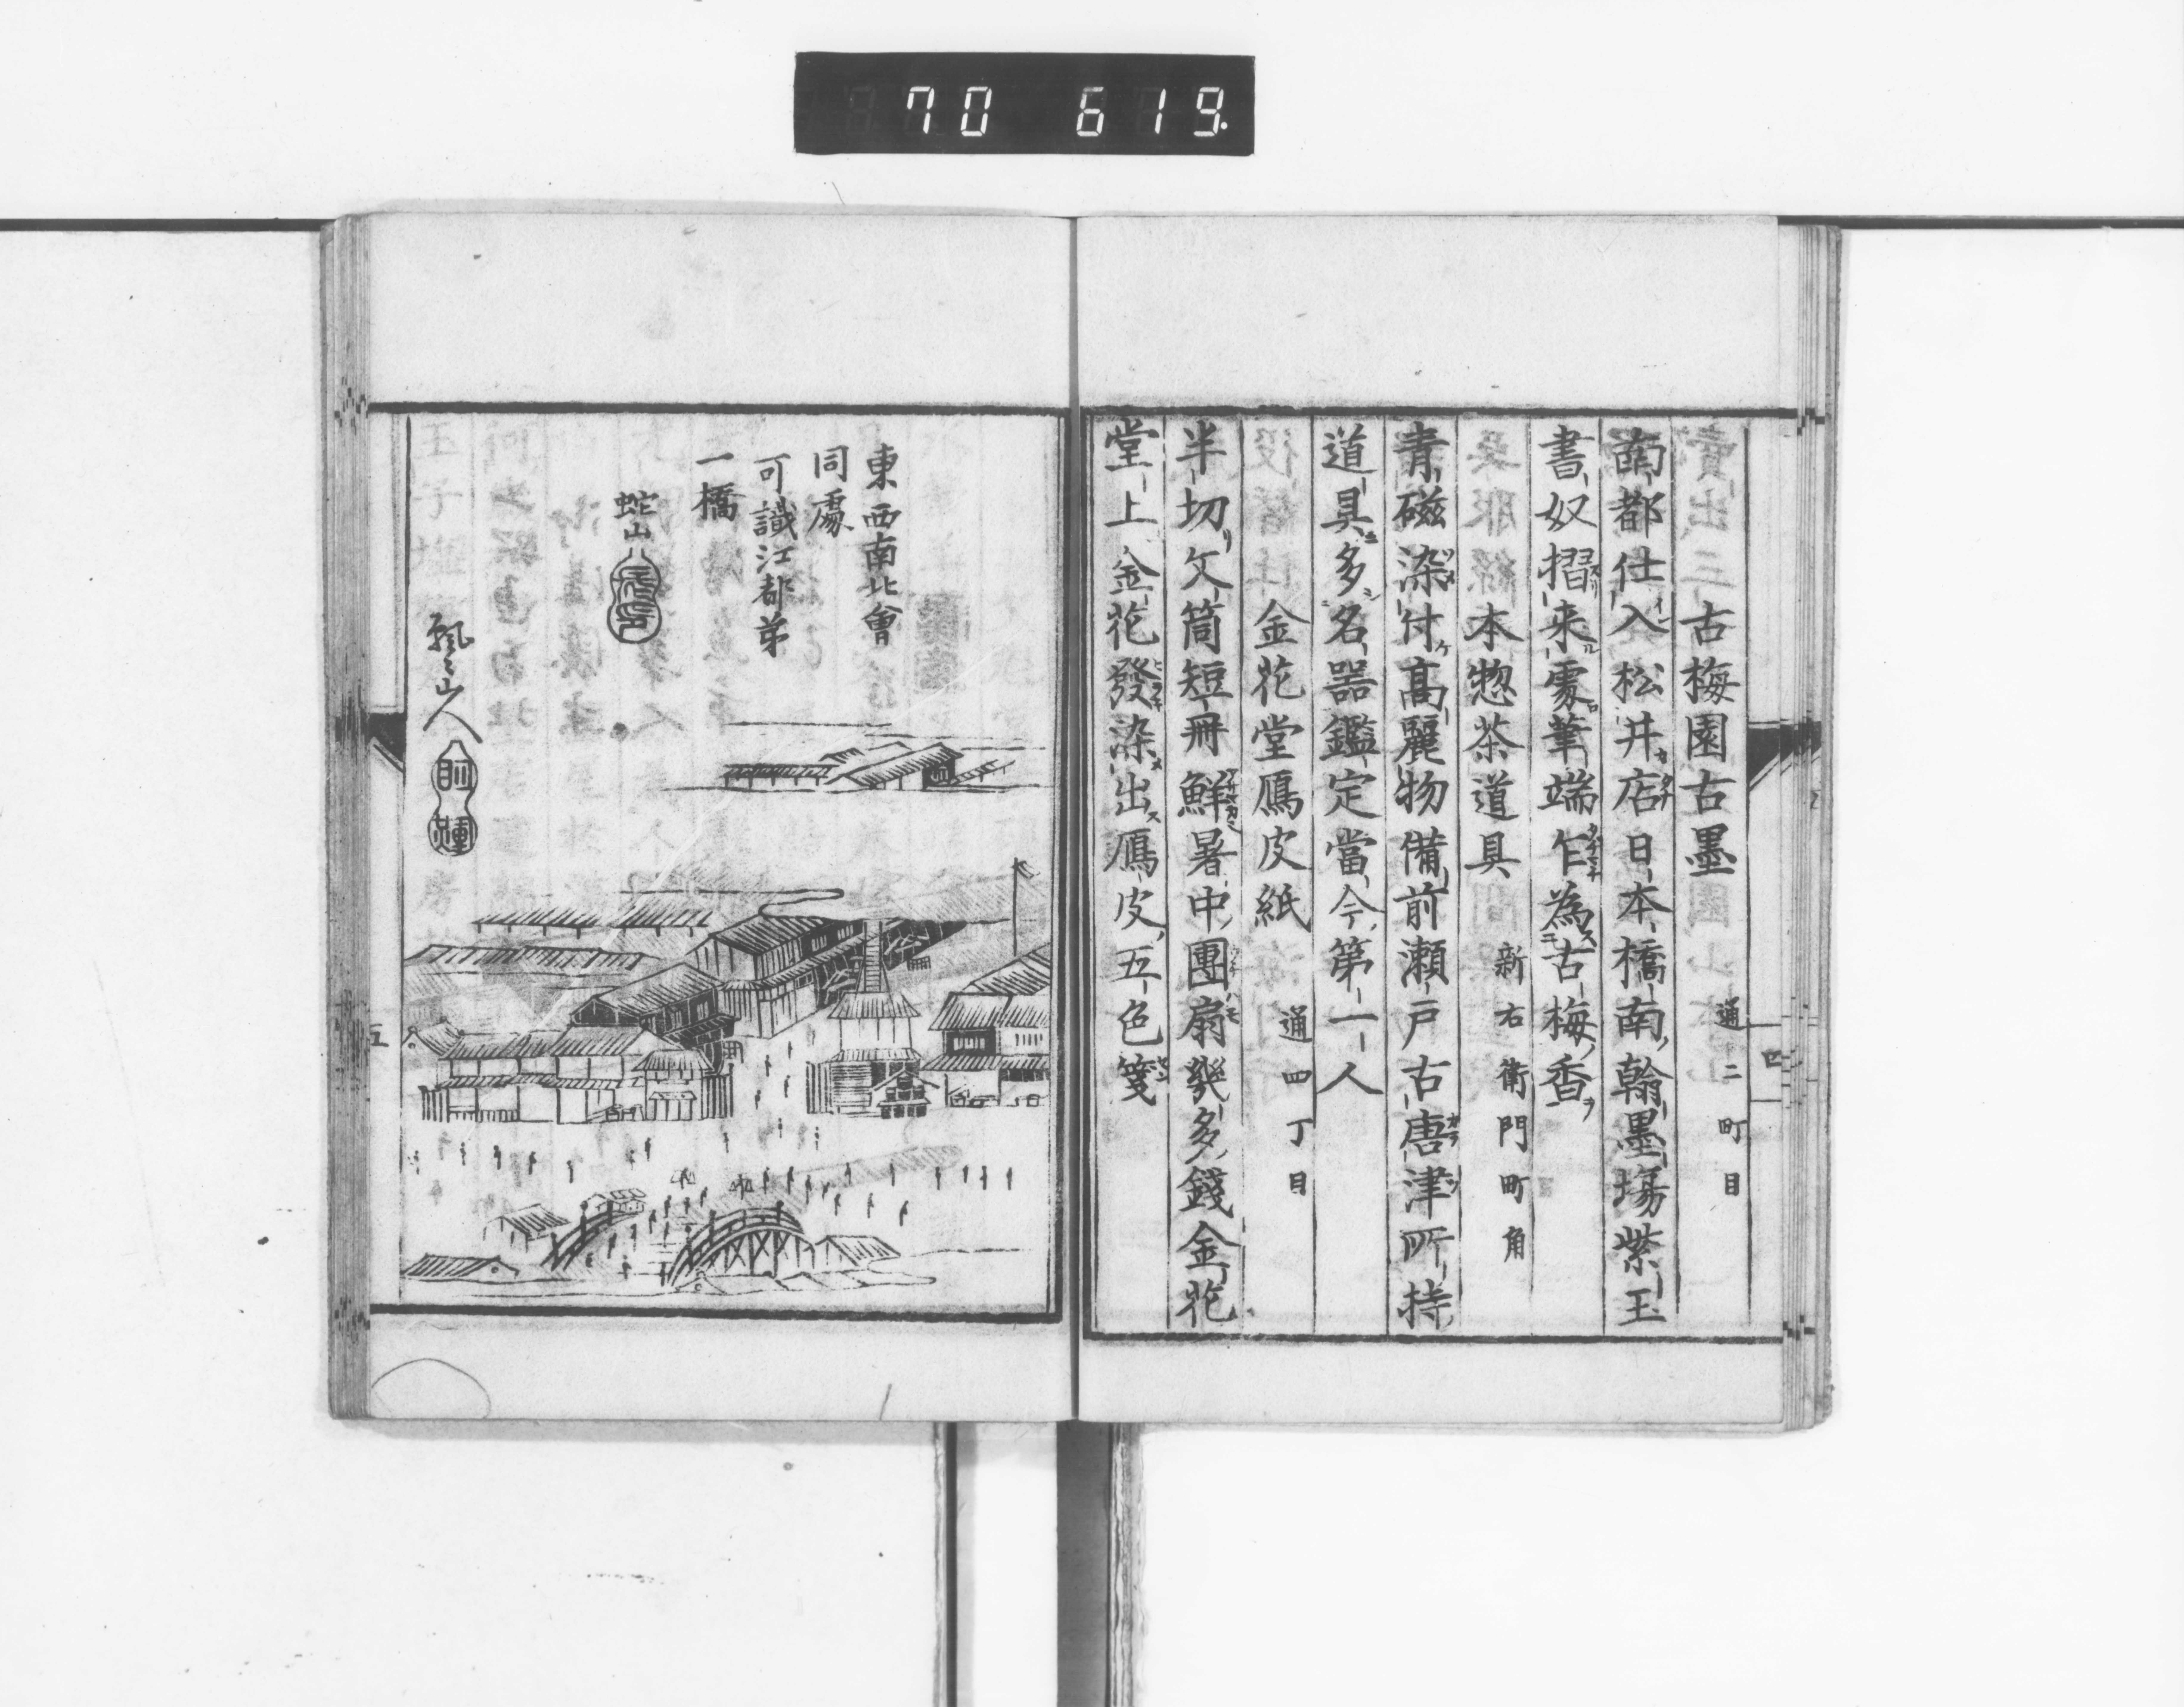 70 619.
古梅園古墨 通二町目
南都仕入松井店日本橋南翰墨場紫玉
書奴摺来處筆端乍為古梅香
本惣茶道具 新右衛門町角
青磁染付高麗物備前瀬戸古唐津所持
道具多名噐鑑定當今第一人
金花堂鴈皮紙 通四丁目
半切文筒短冊鮮暑中團扇幾多錢金花
堂上金花發染出鴈皮五色箋
四
東西南北會
同處
可識江都第
一橋
蛇山
飄々山人
五